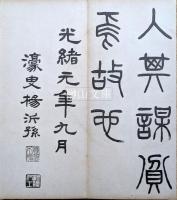 人無謀貨
焉故也
光緒元年九月
濠叟楊沂孫